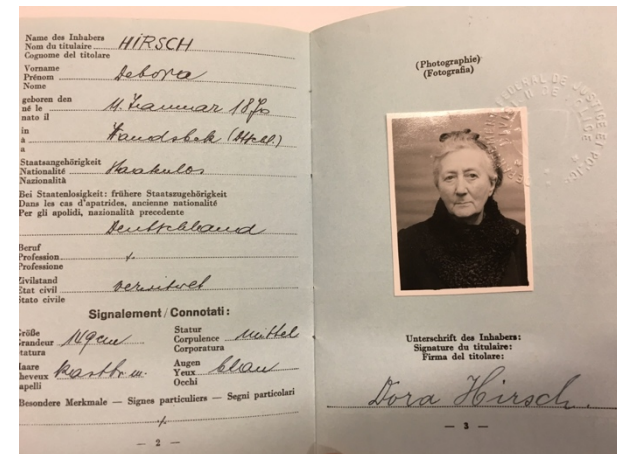 Name des Inhabers
Nom du titulaire HIRSCH
Cognome del titolare
Vorname
Prénom Debora
Nome
geboren den
né le 11. Januar 1870
nato il
in
à Wandsbek (Dtschl.)
a
Staatsangehörigkeit
Nationalité Staatenlos
Nazionalità
Bei Staatenlosigkeit: frühere Staatszugehörigkeit
Dans les cas d'apatrides, ancienne nationalité
Per gli apolidi, nazionalità precedente
Deutschland
Beruf
Profession
Professione
Zivilstand
Etat civil verwitwet
Stato civile
Signalement/Connotati:
Größe Statur
Grandeur 149 cm Corpulence Mittel
Statura Corporatura
Haare Augen
Cheveux Yeux blau
Capelli Occhi
Besondere Merkmale — Signes particuliers — Segni particolari
— 2 —
(Photographie)
(Fotografia)
FEDERAL DE JUSTICE ET POLICE
Unterschrift des Inhabers:
Signature du titulaire:
Firma del titolare:
Dora Hirsch.
— 3 —